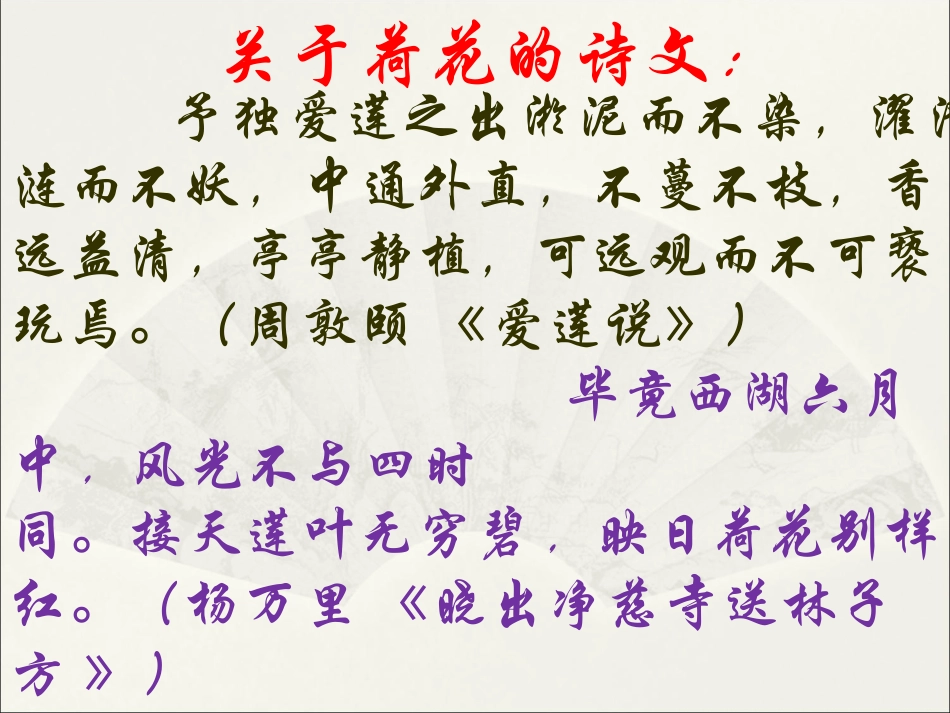 关于荷花的诗文：
予独爱莲之出淤泥而不染，濯清
涟而不妖，中通外直，不蔓不枝，香
远益清，亭亭静植，可远观而不可亵
玩焉。（周敦颐《爱莲说》）
毕竟西湖六月
中，风光不与四时
同。接天莲叶无穷碧，映日荷花别样
红。（杨万里《晓出净慈寺送林子
方》）